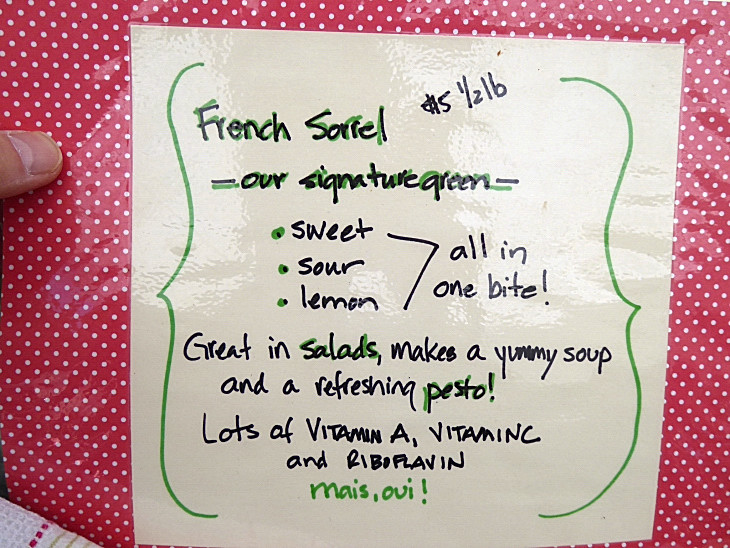 French Sorrel $5 1/2 lb
— our signature green —
• sweet
• sour
• lemon
all in
one bite!
Great in salads, makes a yummy soup
and a refreshing pesto!
Lots of VITAMIN A, VITAMIN C
and RIBOFLAVIN
mais, oui!